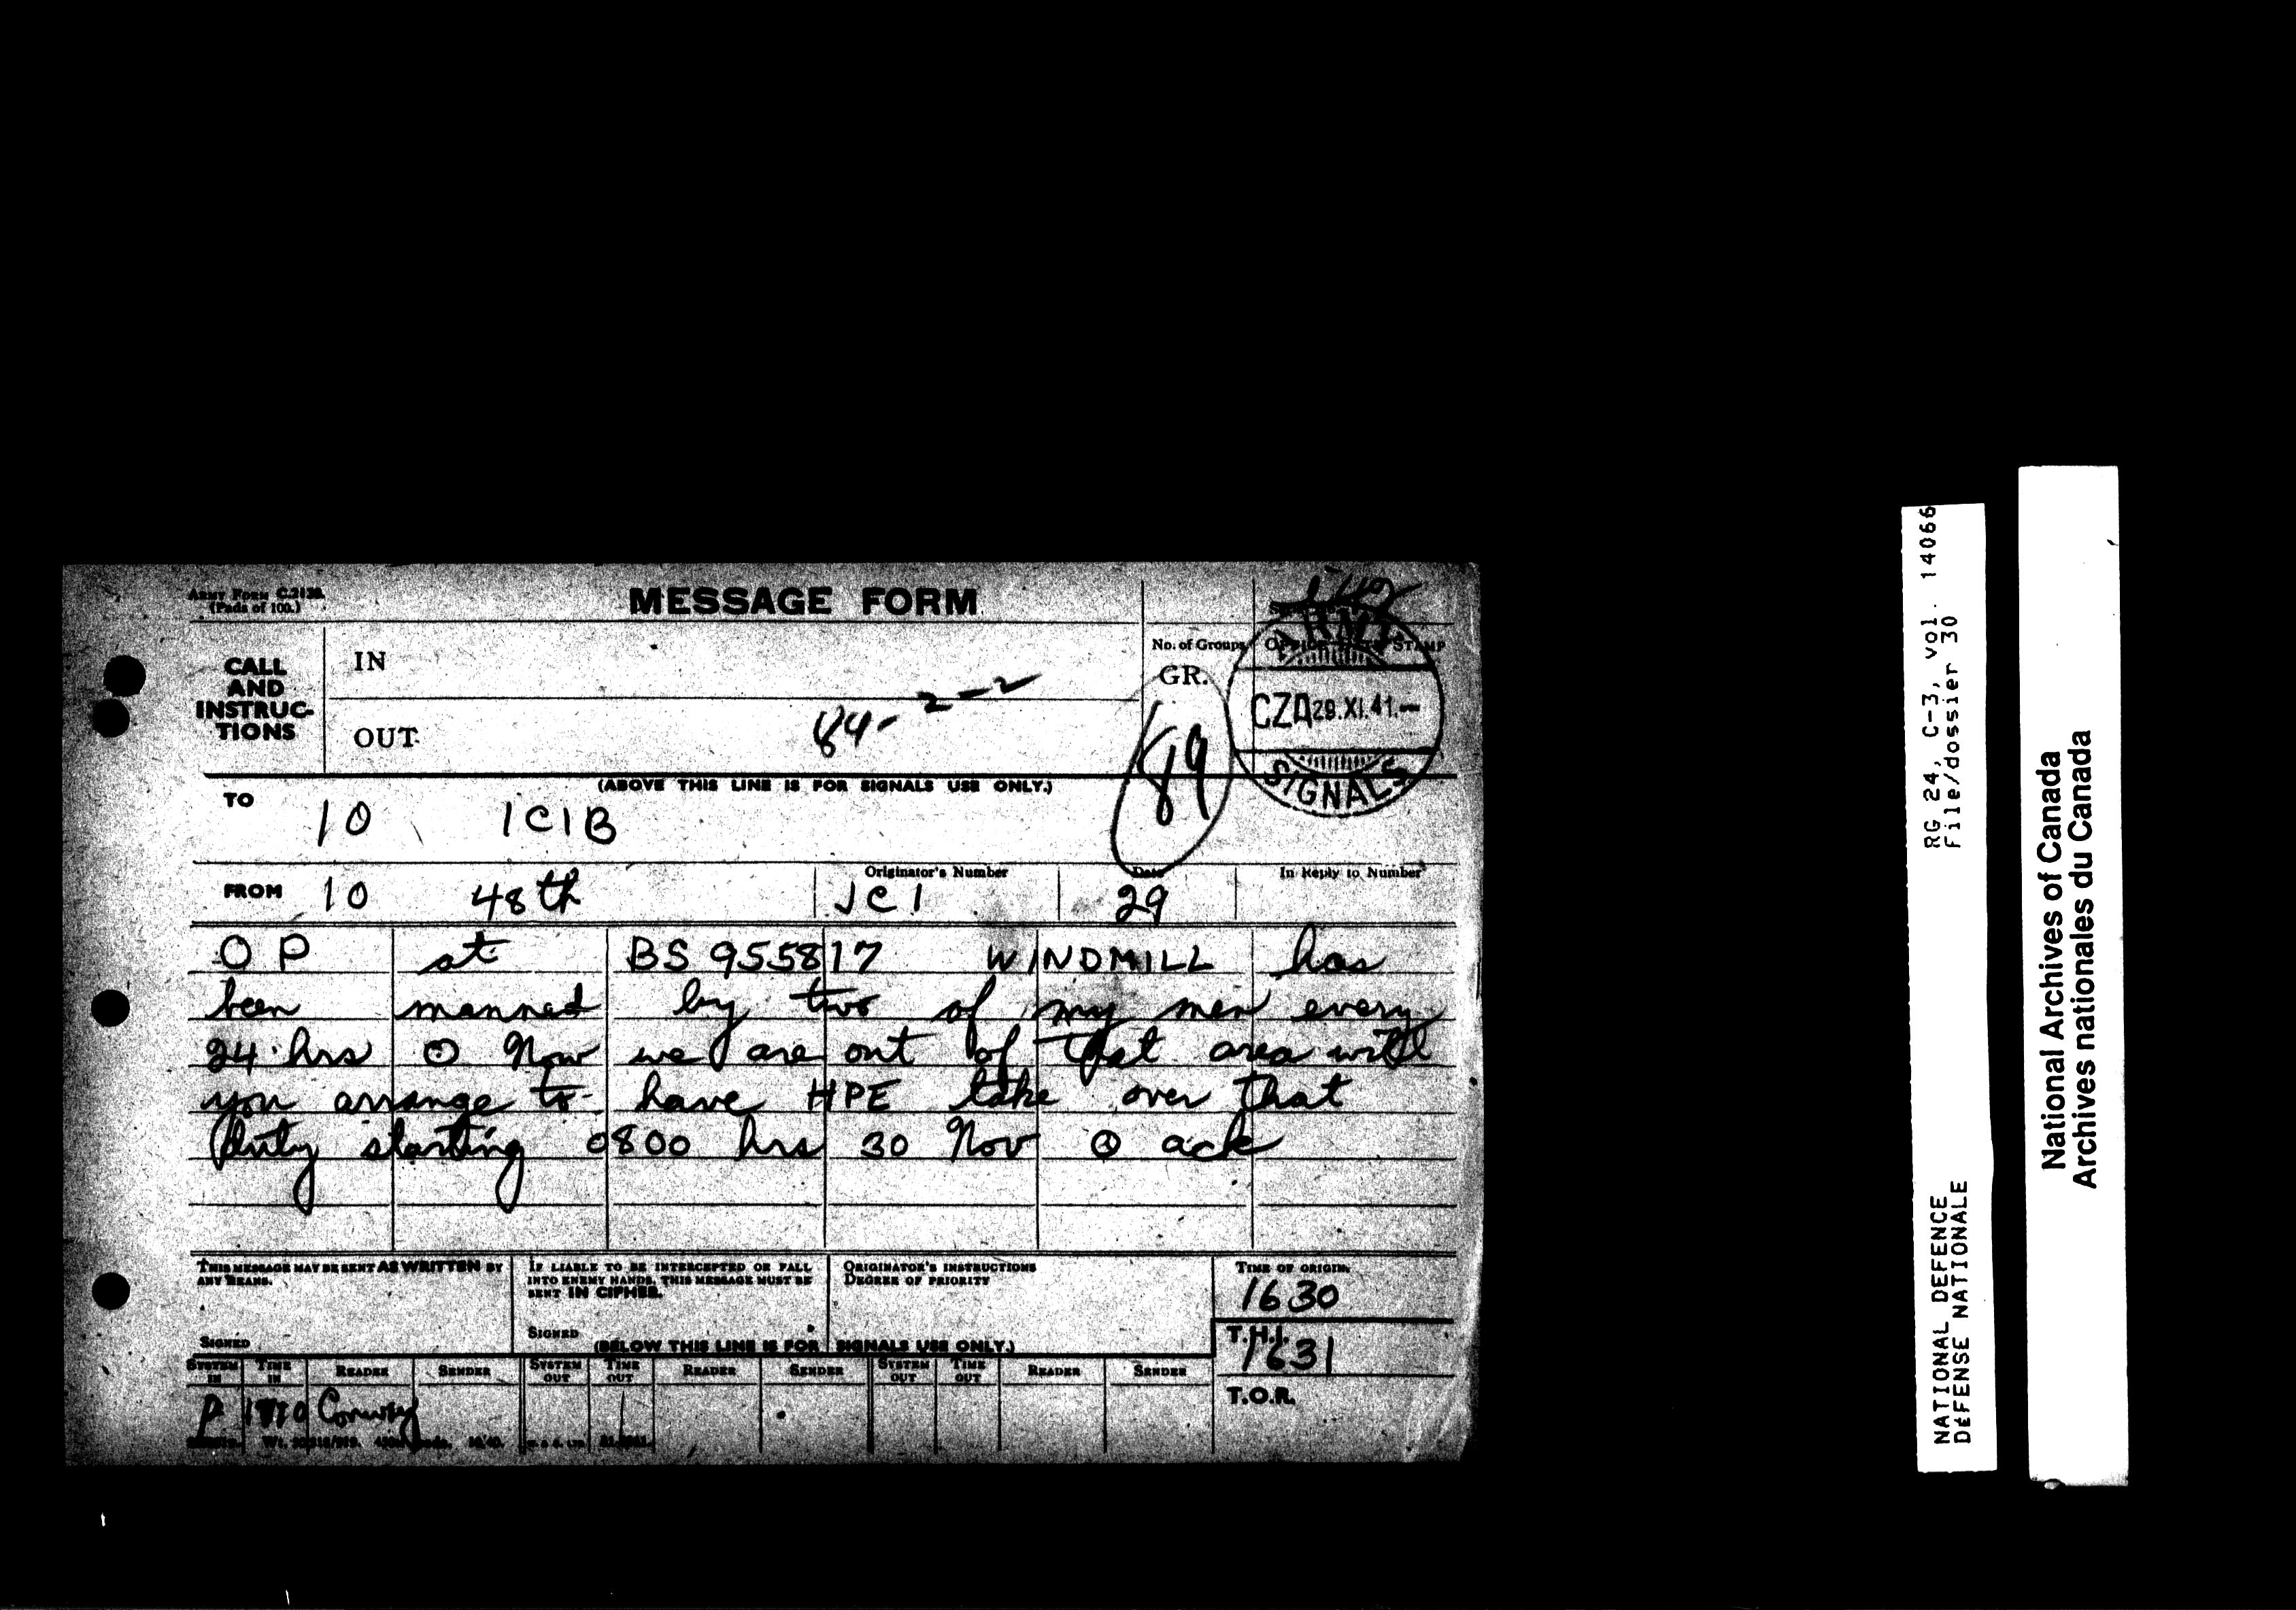 ARMY FORM C.2128.
(Pads of 100.)
MESSAGE FORM
CALL
AND
INSTRUC-
TIONS
IN
OUT
84- 2-2
No. of Groups
GR.
89
ARMY
CZA 29.XI.41.-
SIGNALS
(ABOVE THIS LINE IS FOR SIGNALS USE ONLY.)
TO 10 1CIB
FROM 10 48th
Originator's Number
JC1
Date
29
In Reply to Number
OP at BS 955817 WINDMILL has
been manned by two of my men every
24 hrs ⊙ Now we are out of that area will
you arrange to have HPE take over that
duty starting 0800 hrs 30 Nov ⊙ ack
THIS MESSAGE MAY BE SENT AS WRITTEN BY
ANY MEANS.
SIGNED
IF LIABLE TO BE INTERCEPTED OR FALL
INTO ENEMY HANDS, THIS MESSAGE MUST BE
SENT IN CIPHER.
SIGNED
ORIGINATOR'S INSTRUCTIONS
DEGREE OF PRIORITY
TIME OF ORIGIN.
1630
T.H.I.
1631
T.O.R.
(BELOW THIS LINE IS FOR SIGNALS USE ONLY.)
SYSTEM IN TIME IN READER SENDER SYSTEM OUT TIME OUT READER SENDER SYSTEM OUT TIME OUT READER SENDER
P Conway
RG 24, C-3, vol. 14066
File/dossier 30
NATIONAL DEFENCE
DÉFENSE NATIONALE
National Archives of Canada
Archives nationales du Canada